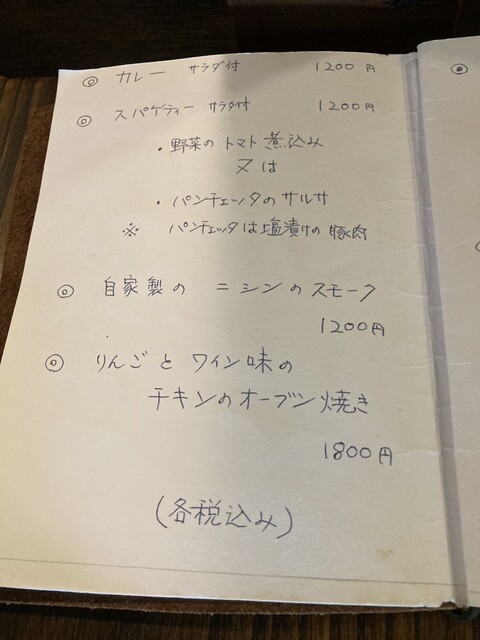 ◎ カレー サラダ付 1200円
◎ スパゲティー サラダ付 1200円
・野菜のトマト煮込み
又は
・パンチェッタのサルサ
※ パンチェッタは塩漬けの豚肉
◎ 自家製の ニシンのスモーク
1200円
◎ りんごと ワイン味の
チキンのオーブン焼き
1800円
(各税込み)
◎